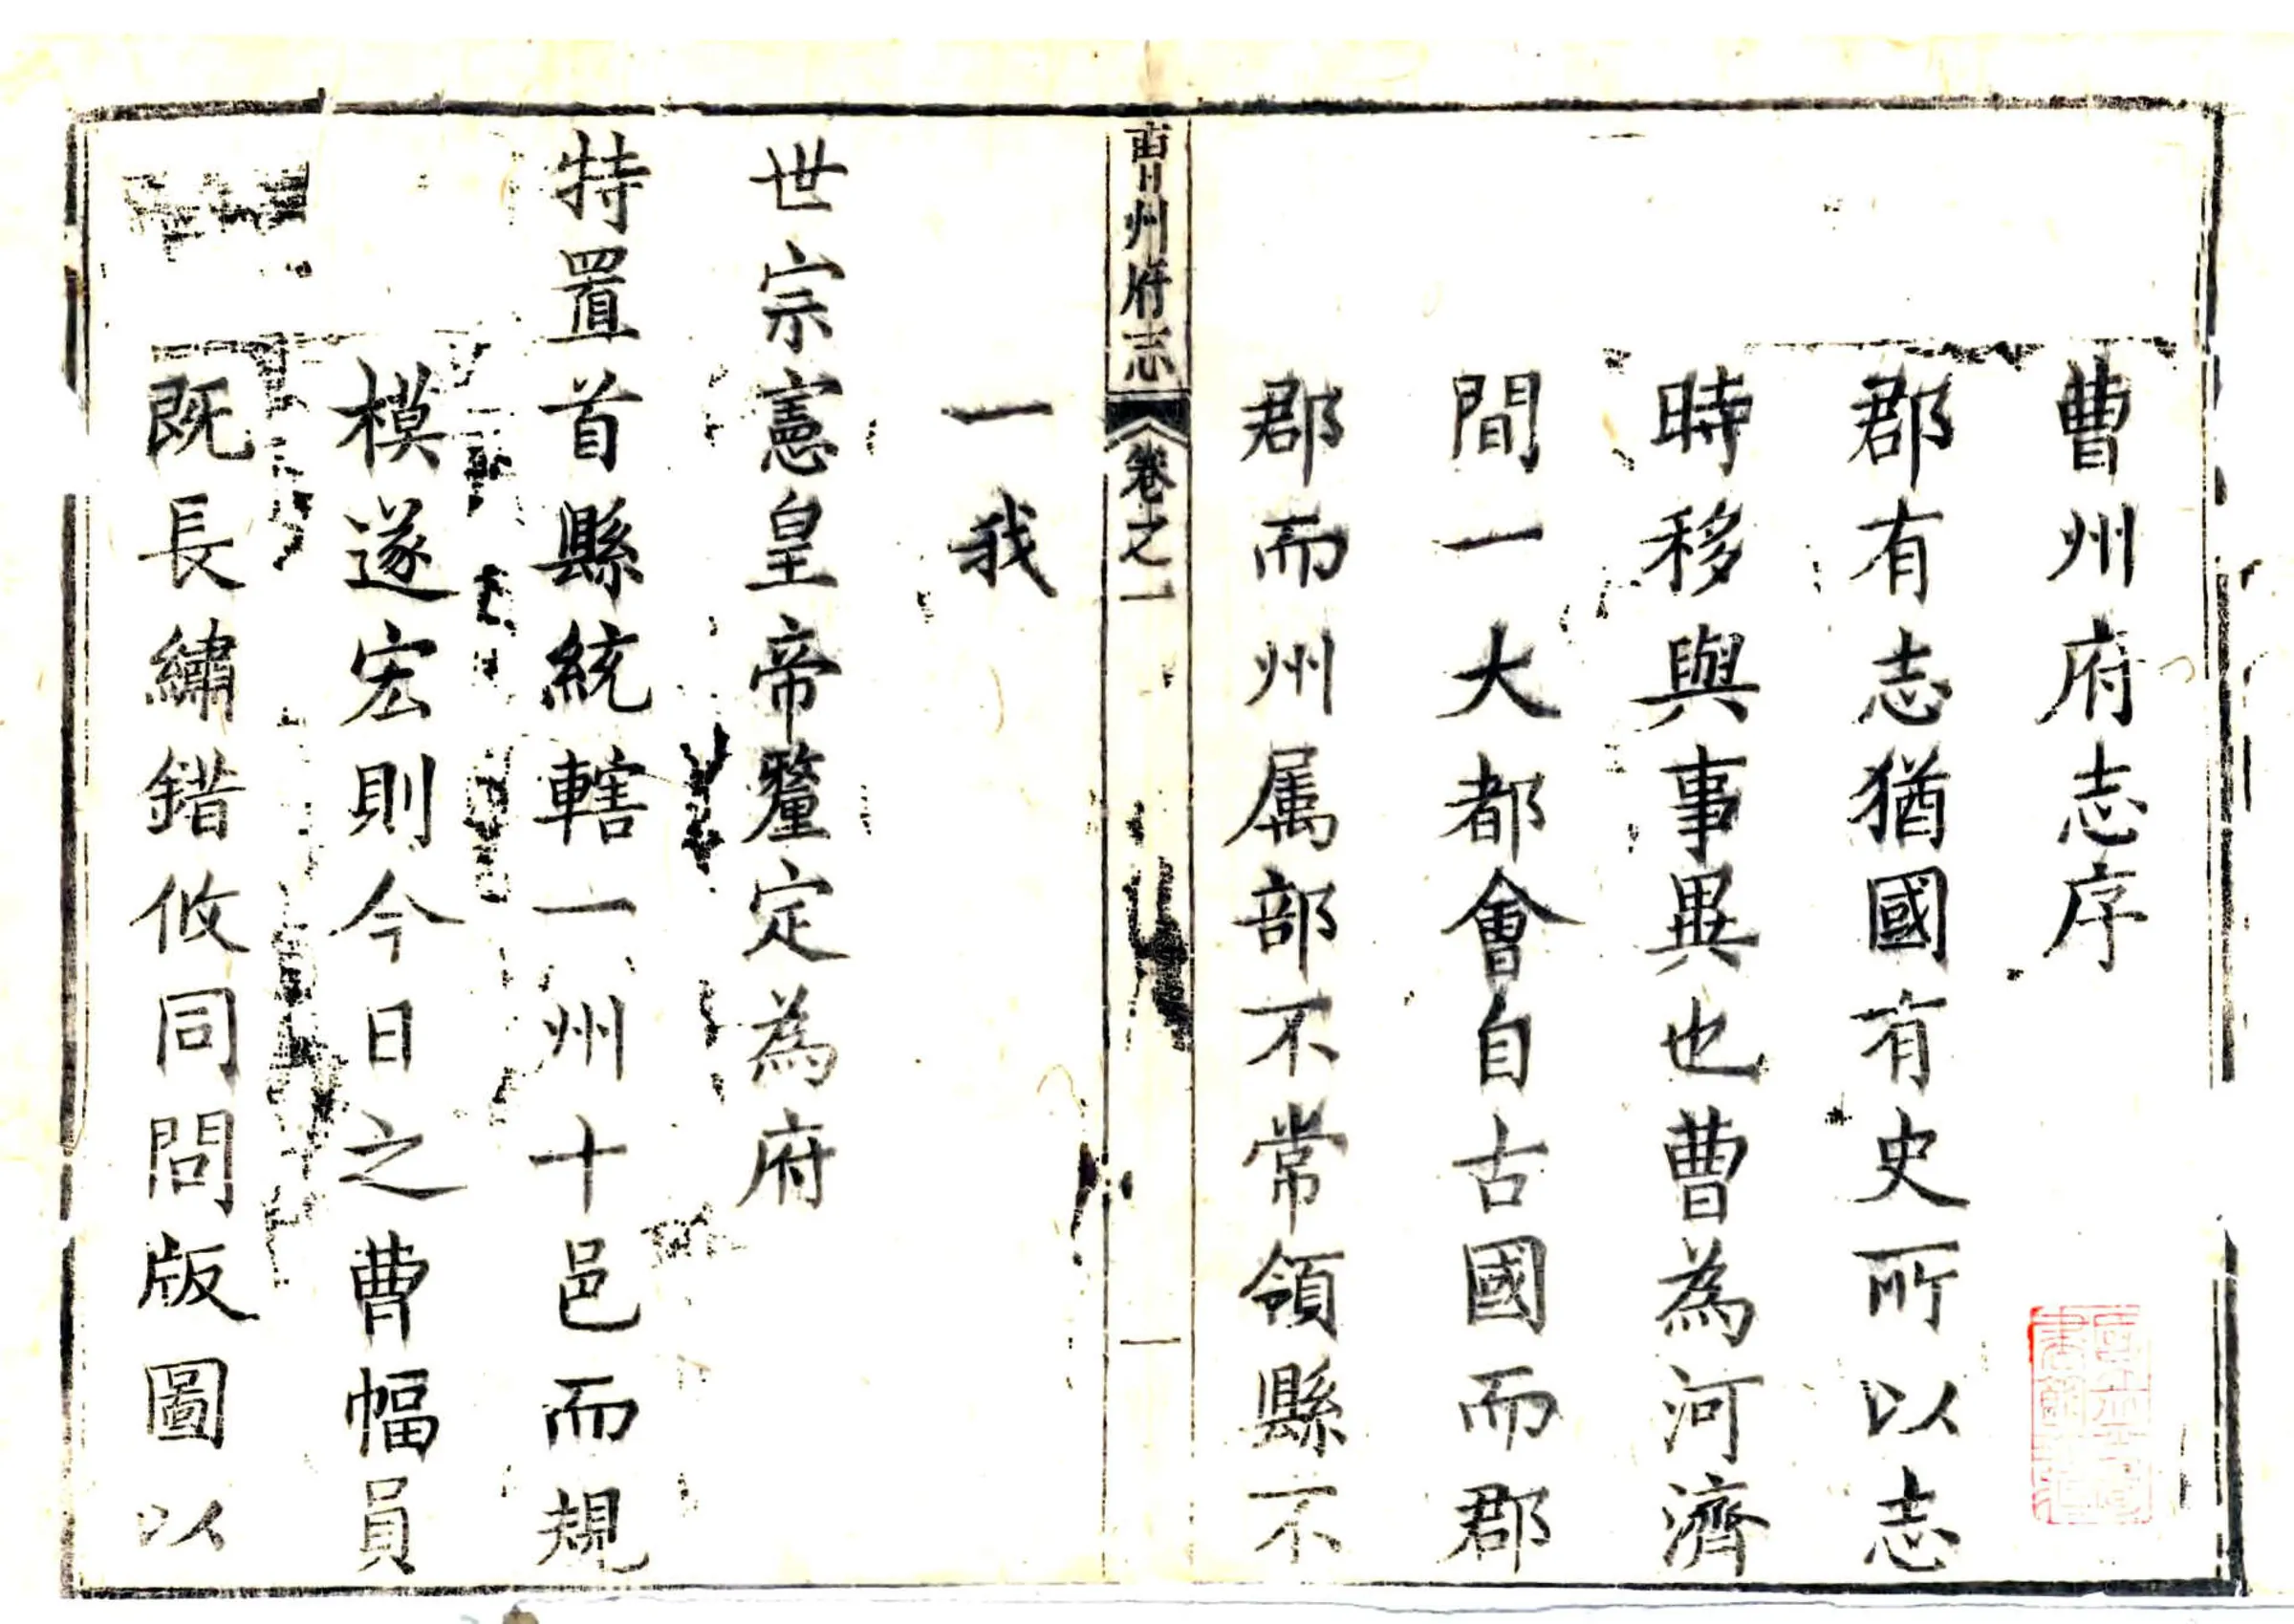 曹州府志序
郡有志猶國有史所以志
時移與事異也曹為河濟
間一大都會自古國而郡
郡而州属部不常領縣不
曹州府志
卷之一
一
一我
世宗憲皇帝釐定為府
特置首縣統轄一州十邑而規
模遂宏則今日之曹幅員
既長繡錯攸同問版圖以